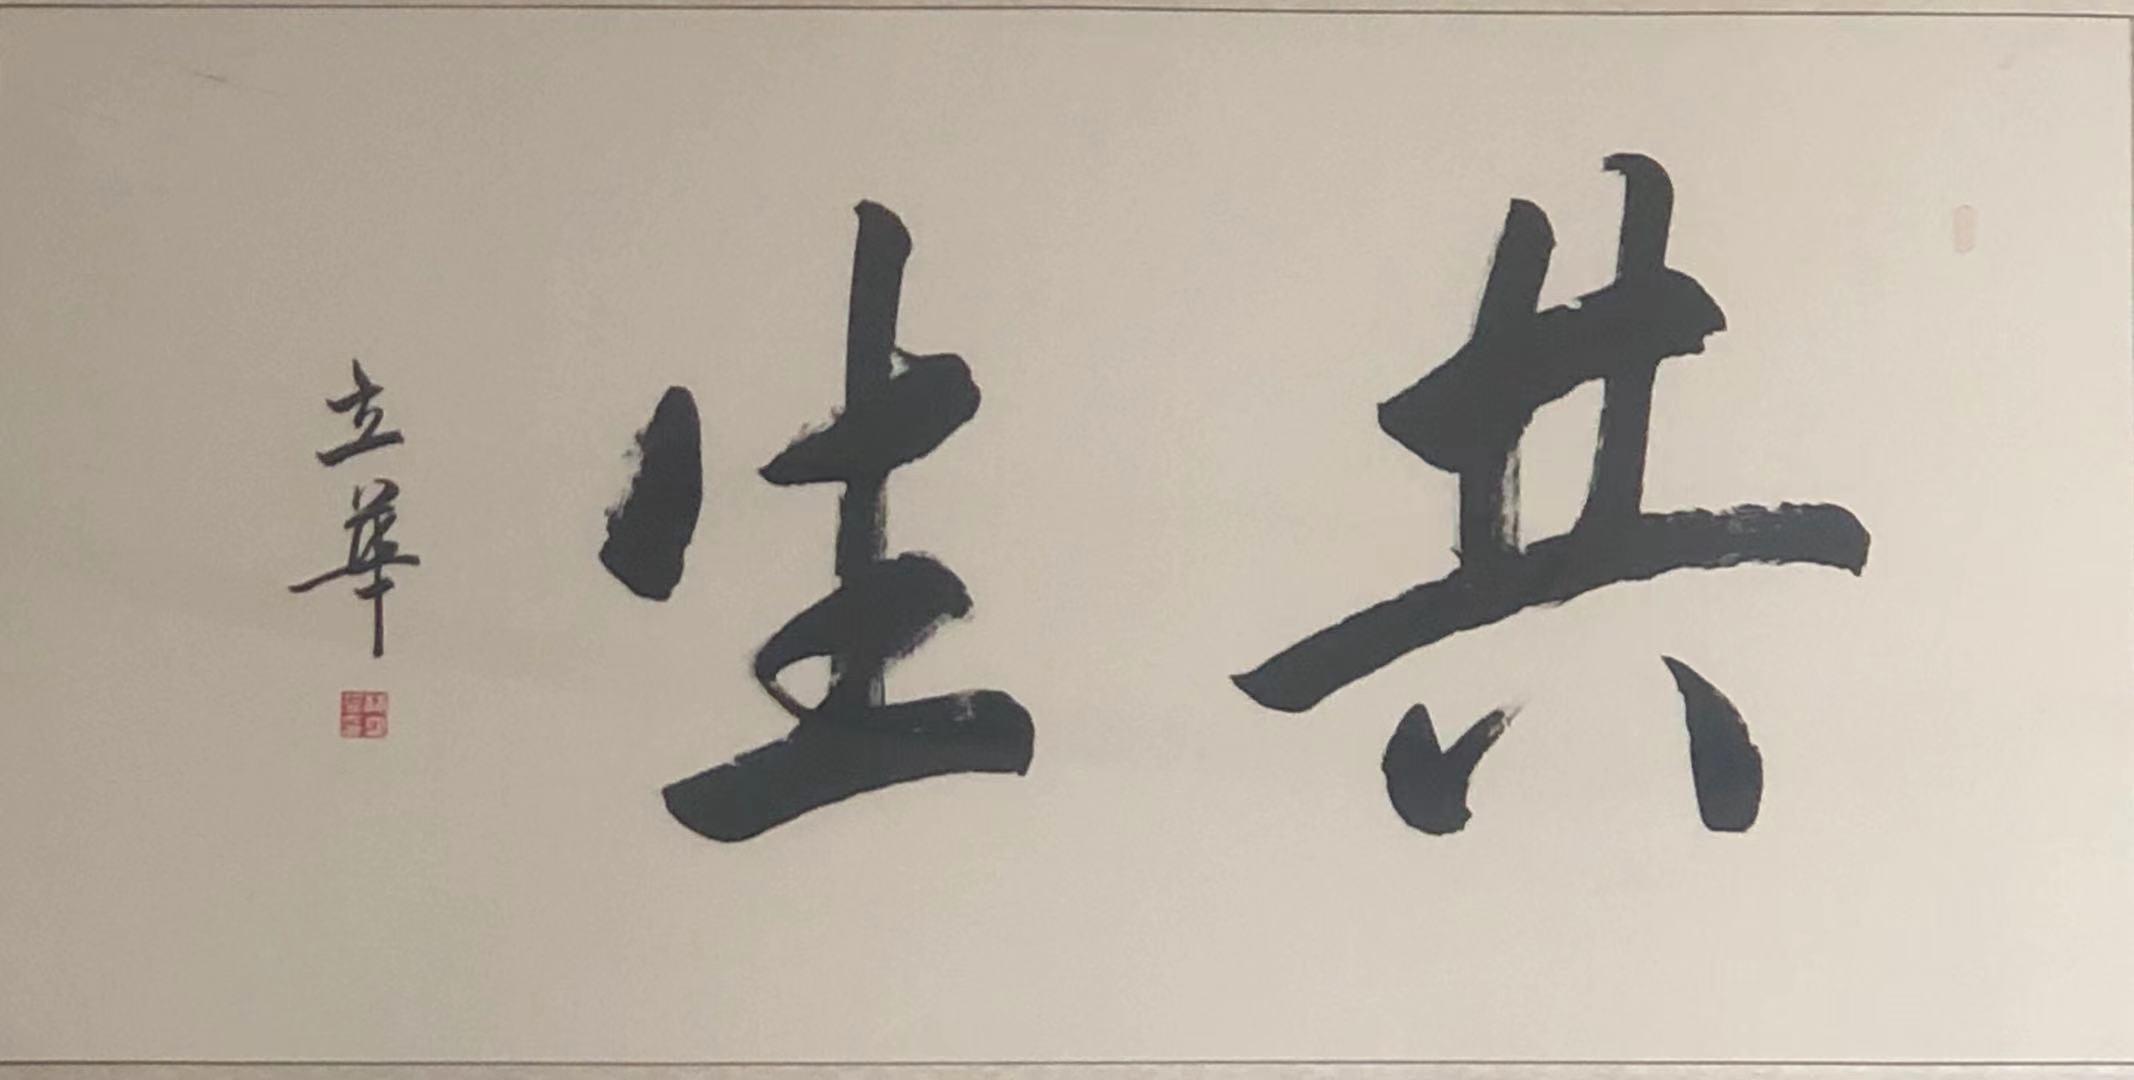 共生
立華